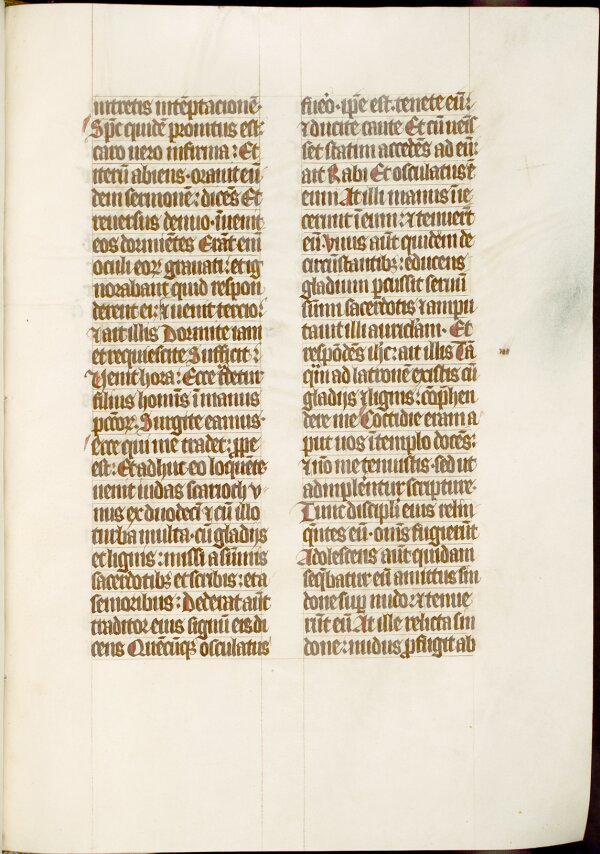 intretis intēptacionē·
Sp̄c quidē promtus est·
caro uero infirma : Et
iterū abiens · orauit eū
dem sermonē : dicēs Et
reuersus denuo · īuenit
eos dormiētes Erāt eni
oculi eoꝝ grauati : et ig
norabant quid respon
derent ei : ⁊ uenit tercio :
⁊ ait illis Dormite iam
et requiescite Sufficit :
Venit hora : Ecce filetur
filius homīs ī manus
pctoꝝ · Surgite eamus ·
ecce qui me tradet : ꝓpe
est : Et adhuc eo loquēte
uenit iudas scarioth v
nus ex duodecī ⁊ cū illo
turba multa · cū gladijs
et lignis : missi a sūmis
sacerdotibꝫ et scribis : et a
senioribus : Dederat aūt
traditor eius signū eis di
cens Quēcūqꝫ osculatus
fuēo · ip̄e est · tenete eū :
⁊ ducite caute Et cū ueīs
set statim accedēs ad eū :
ait Rabi Et osculatus ē
eum At illi manus īie
cerunt ī eum : ⁊ tenuerūt
eū Vnus aūt quidem de
circūstantibꝫ : educens
gladium ꝑcussit seruū
sūmi sacerdotis ⁊ ampu
tauit illi auriclām · Et
respōdēs ih̄c : ait illis Tā
qūi ad latronē existis cū
gladijs ⁊ lignis : cōp̄hen
dere me Cottidie eram a
put uos ī templo docēs :
⁊ nō me tenuistis · sed ut
adimpleūtur scripture ·
Tunc discipli eius relin
qūtes eū · om̄s fugerūt
Adolescens aūt quidam
seqb̄atur eū amictus sin
done suꝑ nudo : ⁊ tenue
rūt eū At ille relicta sin
done : nudus ꝓfugit ab